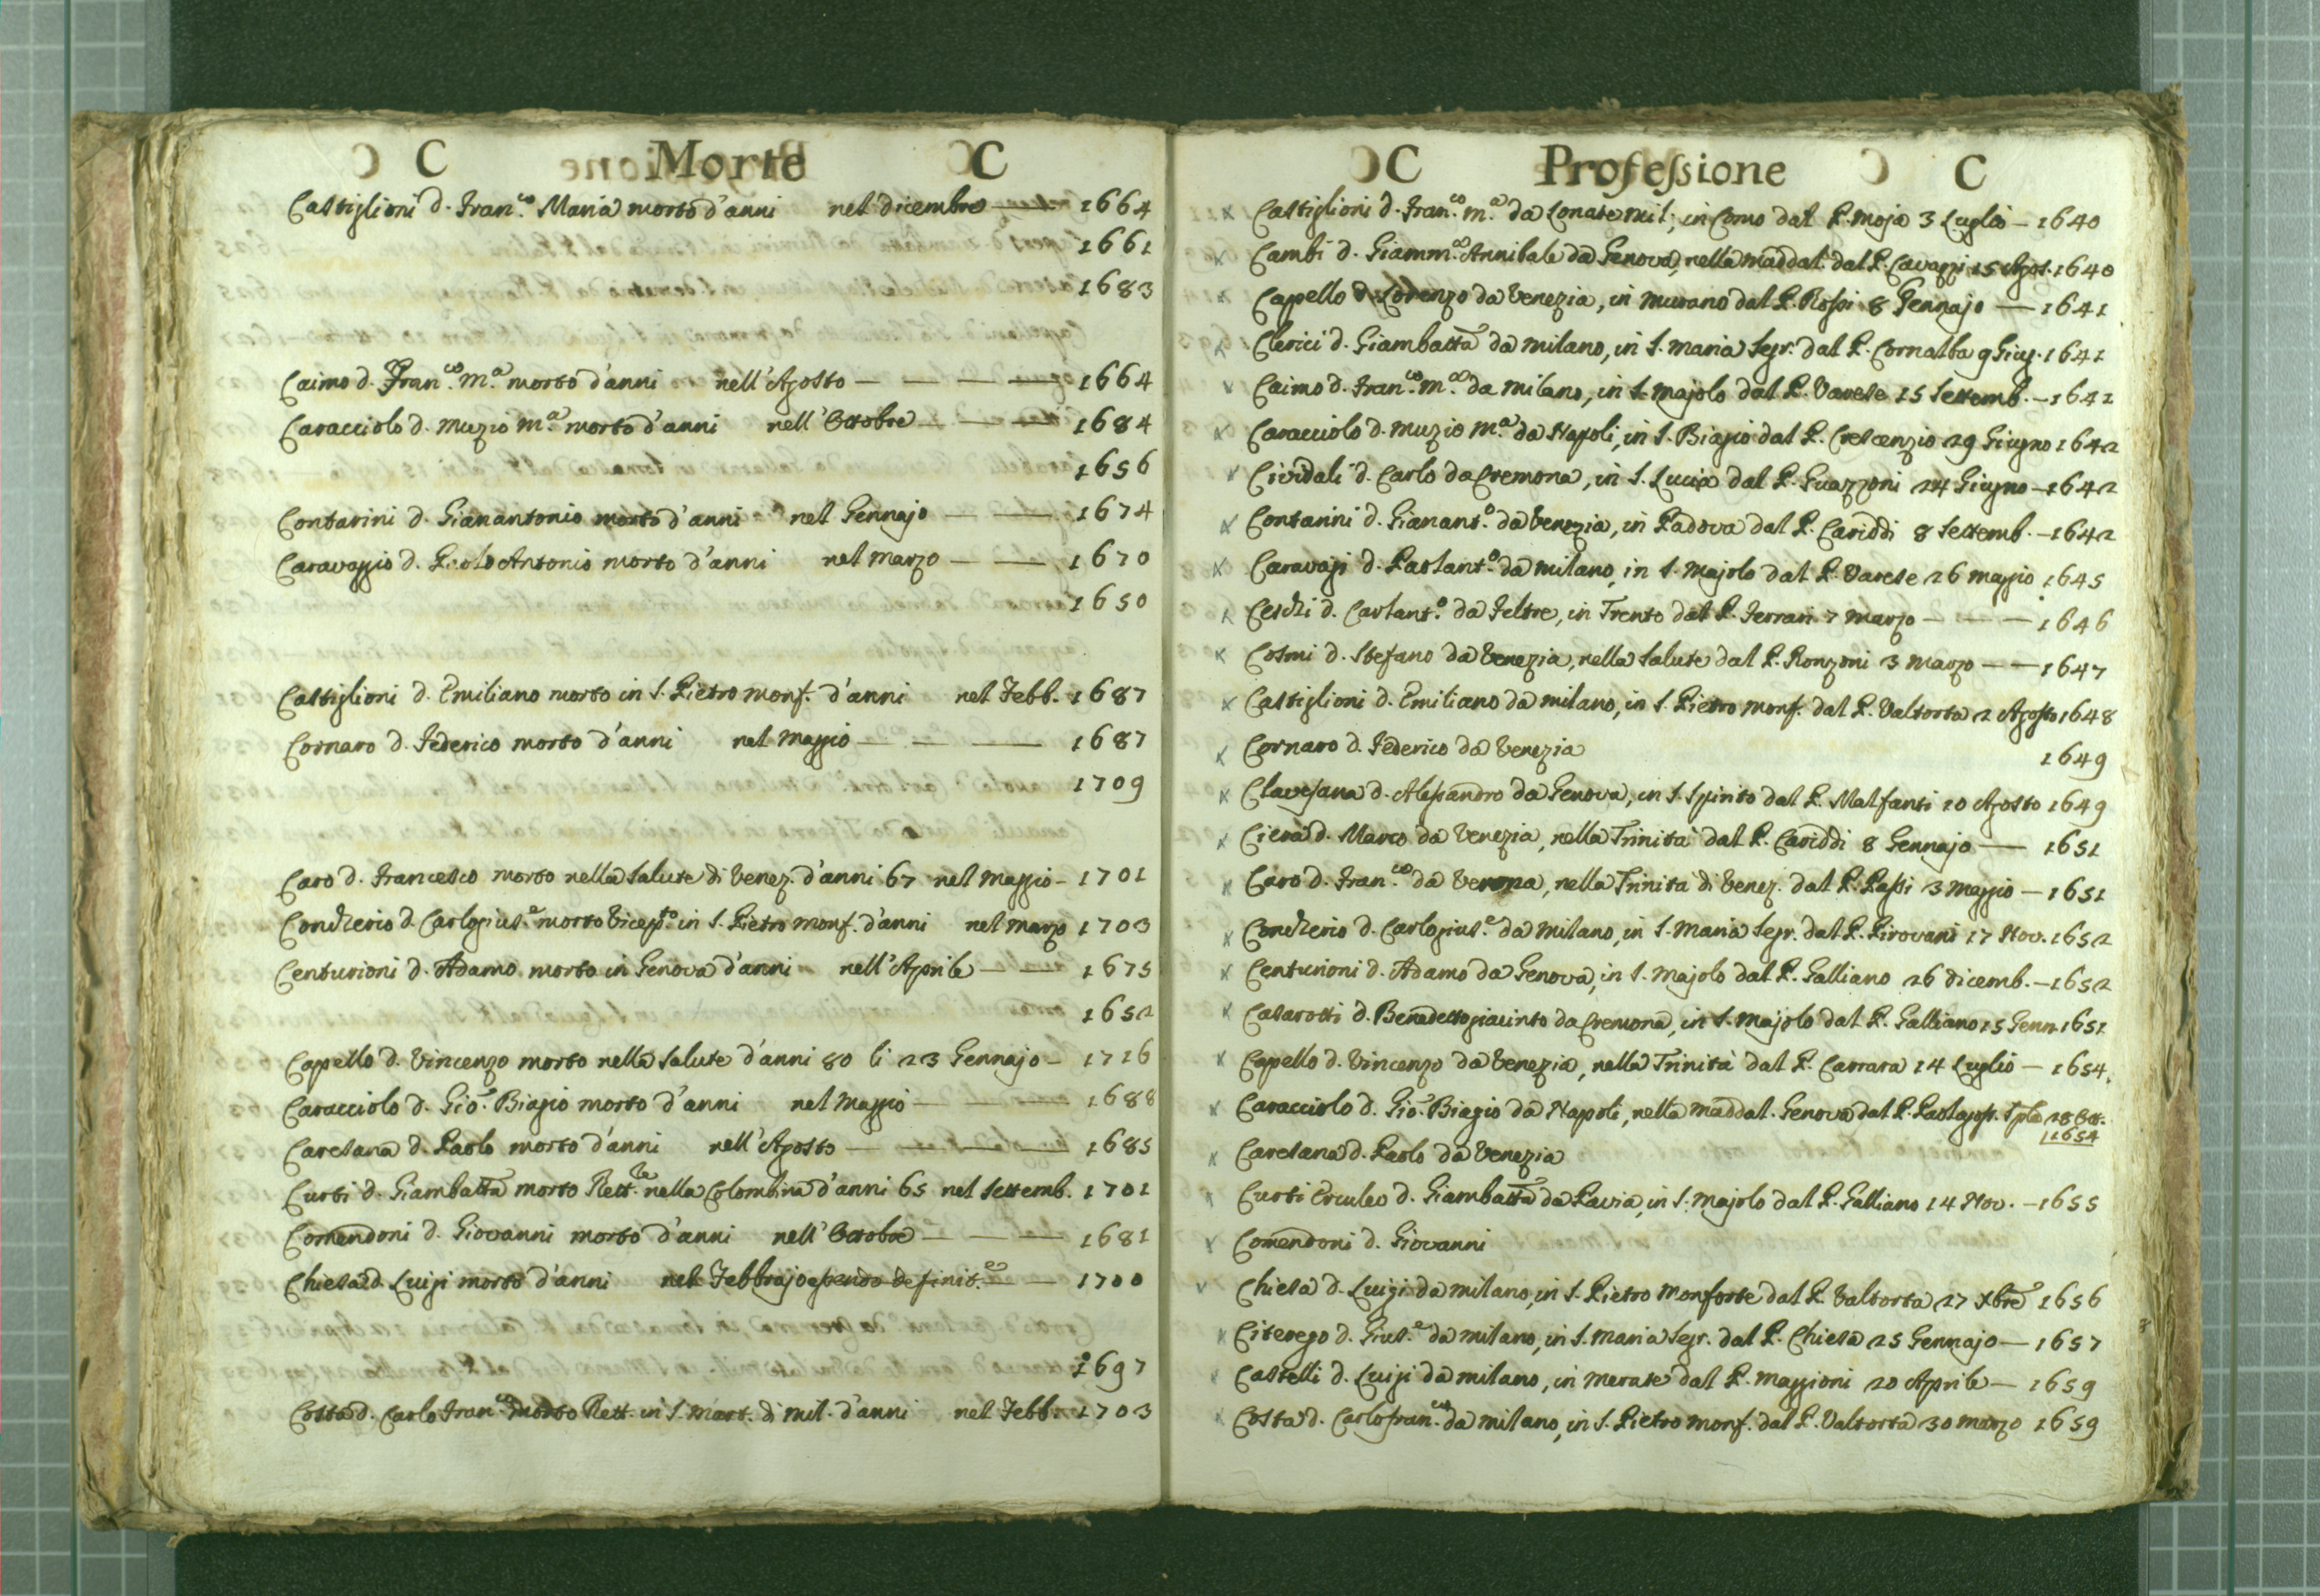 C Morte C
Castiglioni d. Fran.co Maria morto d'anni nel dicembre — 1664
1661
1683
Caimo d. Fran.co M.a morto d'anni nell'Agosto — — — — 1664
Caracciolo d. Muzio M.a morto d'anni nell'Ottobre — — — 1684
1656
Contarini d. Gianantonio morto d'anni nel Gennajo — — 1674
Caravaggio d. Paolo Antonio morto d'anni nel Marzo — — 1670
1650
Castiglioni d. Emiliano morto in S. Pietro Monf. d'anni nel Febb. 1687
Cornaro d. Federico morto d'anni nel Maggio — — — 1687
1709
Caro d. Francesco morto nella Salute di Venez. d'anni 67 nel Maggio - 1701
Concherio d. Carlogius.e morto Vicep.to in S. Pietro Monf. d'anni nel Marzo 1703
Centurioni d. Adamo morto in Genova d'anni nell'Aprile — — 1675
1652
Capello d. Vincenzo morto nella Salute d'anni 80 li 23 Gennajo - 1716
Caracciolo d. Gio. Biagio morto d'anni nel Maggio — — — 1688
Caresana d. Paolo morto d'anni nell'Agosto — — — — 1685
Curti d. Giambatta morto Rett.re nella Colombina d'anni 65 nel Settemb. 1701
Comendoni d. Giovanni morto d'anni nell'Ottobre — — — 1681
Chiesa d. Luigi morto d'anni nel Febbrajo essendo definit.e — 1700
1697
Costa d. Carlo Fran.co morto Rett. in S. Mart. di Mil. d'anni nel Febb. 1703
C Professione C
Castiglioni d. Fran.co M.a da Lonate Mil; in Como dal P. Moja 3 Luglio — 1640
Cambi d. Giamm.a Annibale da Genova, nella Maddal. dal P. Cavazzi 15 Agos. 1640
Capello d. Lorenzo da Venezia, in Murano dal P. Rossi 8 Gennajo — 1641
Clerici d. Giambatta da Milano, in S. Maria Segr. dal P. Cornalba 9 Giug. 1641
Caimo d. Fran.co M.a da Milano, in S. Majolo dal P. Varese 15 Settemb. — 1641
Caracciolo d. Muzio M.a da Napoli, in S. Biagio dal P. Crescenzio 29 Giugno 1642
Cividali d. Carlo da Cremona, in S. Lucia dal P. Guazzoni 24 Giugno — 1642
Contarini d. Gianant.o da Venezia, in Padova dal P. Cariddi 8 Settemb. — 1642
Caravagi d. Paolant.o da Milano, in S. Majolo dal P. Varese 26 Maggio 1645
Ceschi d. Carlant.o da Feltre, in Trento dal P. Ferrari 7 Marzo — — — 1646
Cosmi d. Stefano da Venezia, nella Salute dal P. Ronzoni 3 Marzo — — 1647
Castiglioni d. Emiliano da Milano, in S. Pietro Monf. dal P. Valtorta 2 Agosto 1648
Cornaro d. Federico da Venezia 1649
Clavesana d. Alessandro da Genova, in S. Spirito dal P. Malfanti 10 Agosto 1649
Ciera d. Marco da Venezia, nella Trinità dal P. Cariddi 8 Gennajo — 1651
Caro d. Fran.co da Verona, nella Trinità di Venez. dal P. Passi 3 Maggio — 1651
Concherio d. Carlogius.e da Milano, in S. Maria Segr. dal P. Pirovani 17 Nov. 1652
Centurioni d. Adamo da Genova, in S. Majolo dal P. Galliano 26 dicemb. — 1652
Casarotti d. Benedettogiacinto da Cremona, in S. Majolo dal P. Galliano 15 Genn. 1651
Capello d. Vincenzo da Venezia, nella Trinità dal P. Carrara 14 Luglio — 1654.
Caracciolo d. Gio. Biagio da Napoli, nella Maddal. Genova dal P. 28 Ott.
1654
Caresana d. Paolo da Venezia
Curti Erculeo d. Giambatta da Pavia, in S. Majolo dal P. Galliano 14 Nov. — 1655
Comendoni d. Giovanni
Chiesa d. Luigi da Milano, in S. Pietro Monforte dal P. Valtorta 27 Xbre 1656
Citerego d. Gius.e da Milano, in S. Maria Segr. dal P. Chiesa 25 Gennajo — 1657
Castelli d. Luigi da Milano, in Merate dal P. Maggioni 20 Aprile — 1659
Costa d. Carlofran.co da Milano, in S. Pietro Monf. dal P. Valtorta 30 Marzo 1659